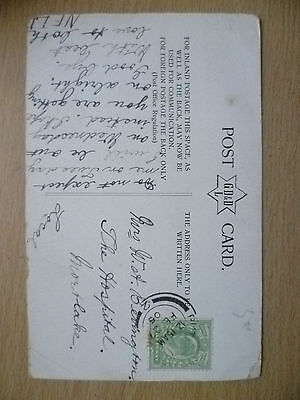 POST CARD.
G.D.&D.
L
FOR INLAND POSTAGE THIS SPACE, AS
WELL AS THE BACK, MAY NOW BE
USED FOR COMMUNICATION.
FOR FOREIGN POSTAGE THE BACK ONLY
(Post Office Regulation)
THE ADDRESS ONLY TO BE
WRITTEN HERE.
Do not expect
me on Tuesday
I will be out
on Wednesday
instead. Hope
you are getting
on alright.
Good bye
With best
love to both
Mrs W. A.
The Hospital.